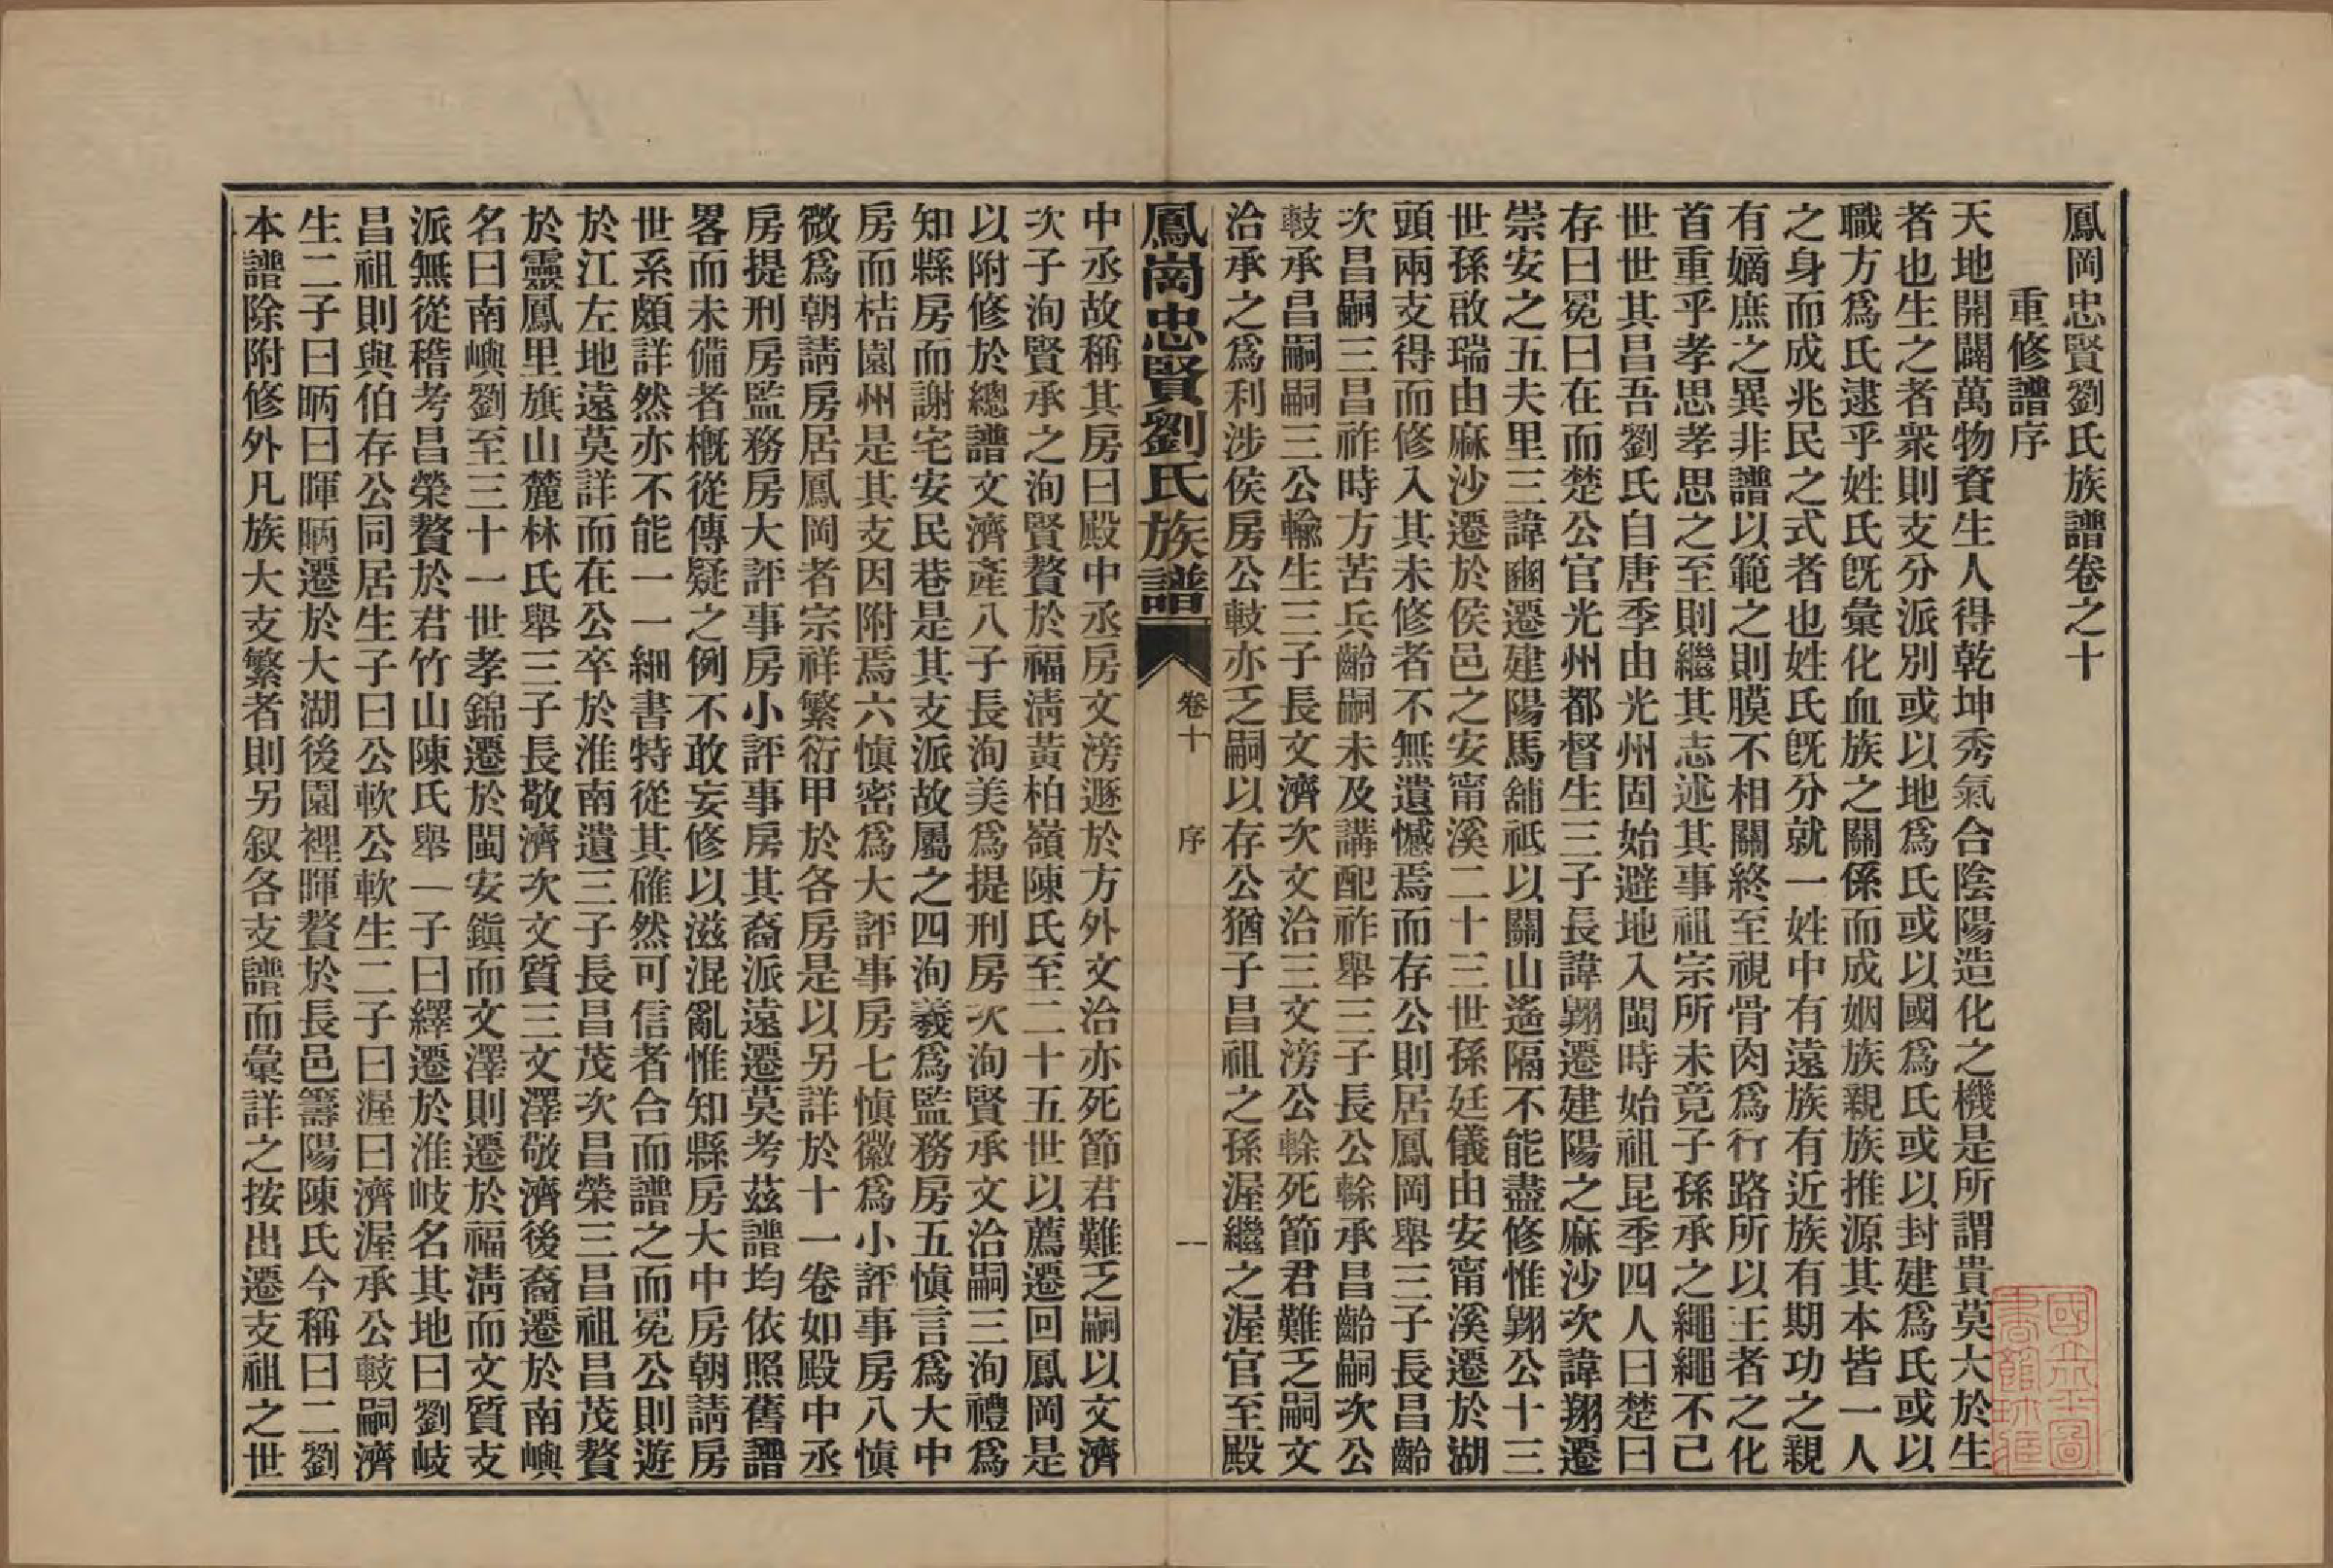 鳳岡忠賢劉氏族譜卷之十
重修譜序
天地開闢萬物資生人得乾坤秀氣合陰陽造化之機是所謂貴莫大於生
者也生之者衆則支分派別或以地爲氏或以國爲氏或以封建爲氏或以
職方爲氏逮乎姓氏旣彙化血族之關係而成姻族親族推源其本皆一人
之身而成兆民之式者也姓氏旣分就一姓中有遠族有近族有期功之親
有嫡庶之異非譜以範之則膜不相關終至視骨肉爲行路所以王者之化
首重乎孝思孝思之至則繼其志述其事祖宗所未竟子孫承之繩繩不已
世世其昌吾劉氏自唐季由光州固始避地入閩時始祖昆季四人曰楚曰
存曰冕曰在而楚公官光州都督生三子長諱翺遷建陽之麻沙次諱翔遷
崇安之五夫里三諱豳遷建陽馬舖祗以關山遙隔不能盡修惟翺公十三
世孫啟瑞由麻沙遷於侯邑之安甯溪二十三世孫廷儀由安甯溪遷於湖
頭兩支得而修入其未修者不無遺憾焉而存公則居鳳岡舉三子長昌齡
次昌嗣三昌祚時方苦兵齡嗣未及講配祚舉三子長公榦承昌齡嗣次公
輆承昌嗣嗣三公輸生三子長文濟次文治三文滂公榦死節君難乏嗣文
治承之爲利涉侯房公輆亦乏嗣以存公猶子昌祖之孫渥繼之渥官至殿
鳳崗忠賢劉氏族譜
卷十
序
一
中丞故稱其房曰殿中丞房文滂遯於方外文治亦死節君難乏嗣以文濟
次子洵賢承之洵賢贅於福淸黃柏嶺陳氏至二十五世以薦遷回鳳岡是
以附修於總譜文濟產八子長洵美爲提刑房次洵賢承文治嗣三洵禮爲
知縣房而謝宅安民巷是其支派故屬之四洵羲爲監務房五愼言爲大中
房而桔園州是其支因附焉六愼密爲大評事房七愼徽爲小評事房八愼
微爲朝請房居鳳岡者宗祥繁衍甲於各房是以另詳於十一卷如殿中丞
房提刑房監務房大評事房小評事房其裔派遠遷莫考茲譜均依照舊譜
畧而未備者槪從傳疑之例不敢妄修以滋混亂惟知縣房大中房朝請房
世系頗詳然亦不能一一細書特從其確然可信者合而譜之而冕公則遊
於江左地遠莫詳而在公卒於淮南遺三子長昌茂次昌榮三昌祖昌茂贅
於靈鳳里旗山麓林氏舉三子長敬濟次文質三文澤敬濟後裔遷於南嶼
名曰南嶼劉至三十一世孝錦遷於閩安鎭而文澤則遷於福淸而文質支
派無從稽考昌榮贅於君竹山陳氏舉一子曰繹遷於淮岐名其地曰劉岐
昌祖則與伯存公同居生子曰公軟公軟生二子曰渥曰濟渥承公輆嗣濟
生二子曰昞曰暉昞遷於大湖後園裡暉贅於長邑籌陽陳氏今稱曰二劉
本譜除附修外凡族大支繁者則另叙各支譜而彙詳之按出遷支祖之世
國立北平圖
書館珍藏